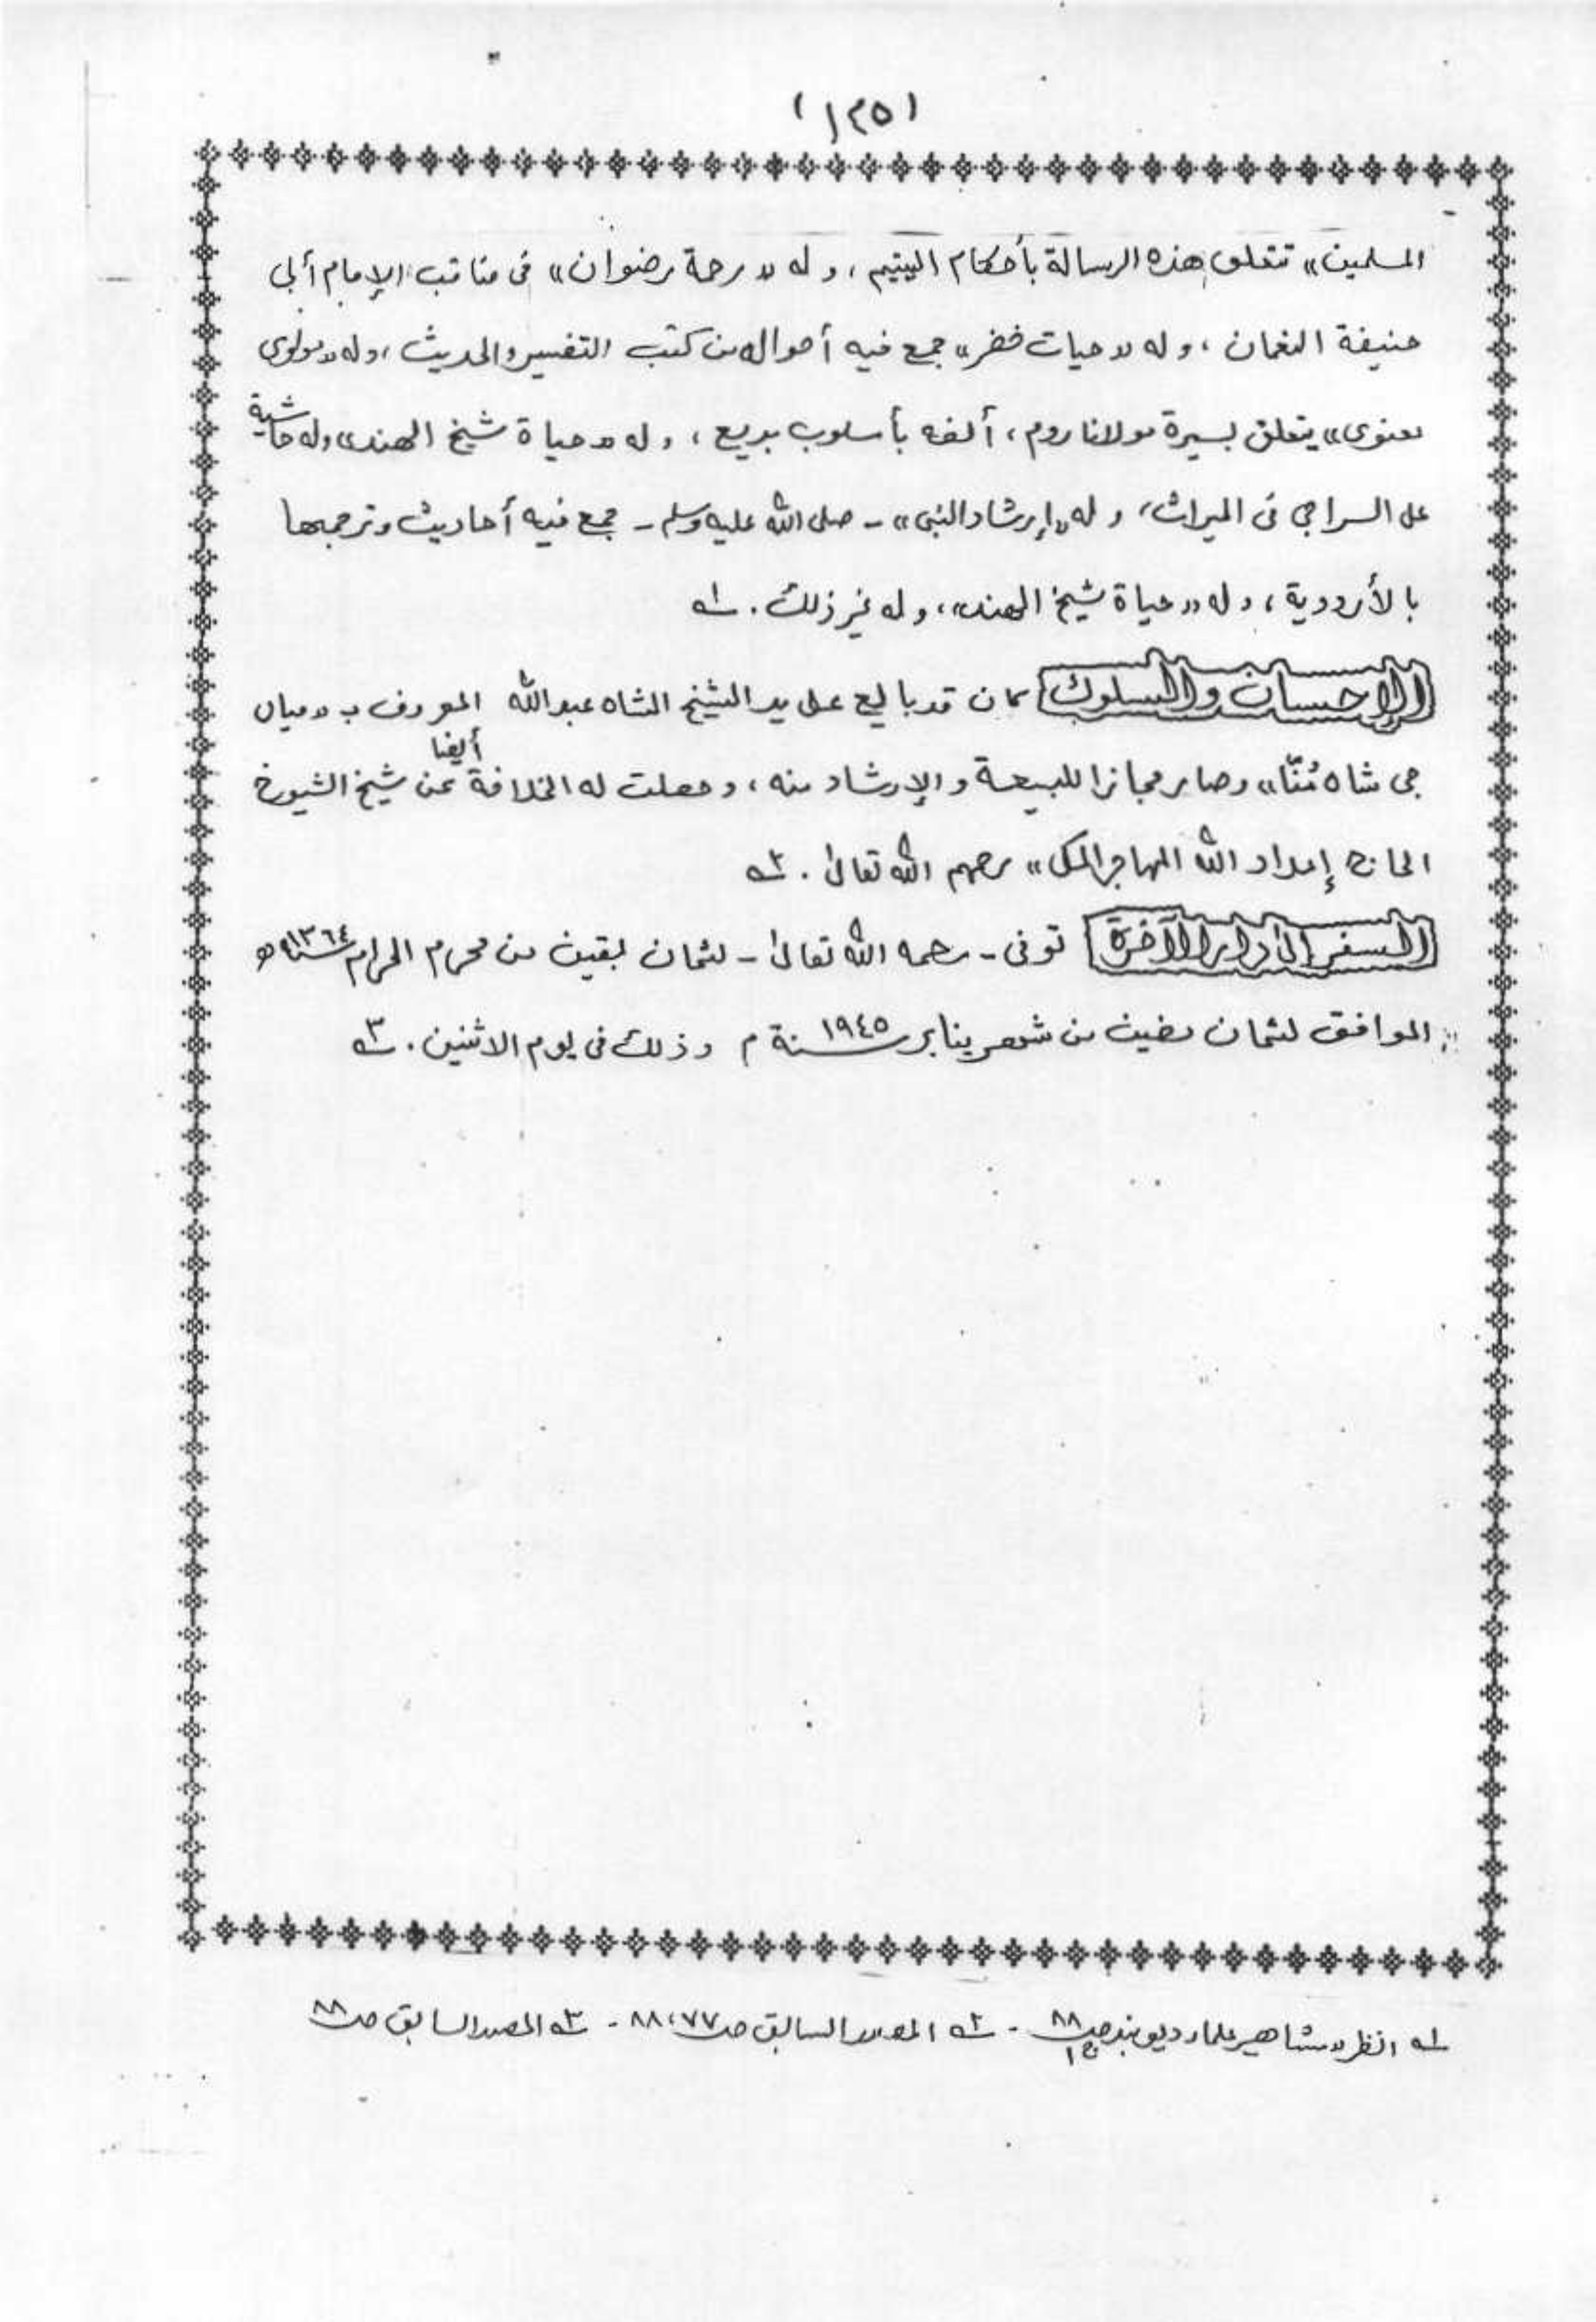 (١٢٥)
المسلمين» تتعلق هذه الرسالة بأحكام اليتيم، وله «رحمة رضوان» فى مناقب الإمام أبى
حنيفة النعمان، وله «حيات خضر» جمع فيه أحواله من كتب التفسير والحديث، وله «مولوى
معنوى» يتعلق بسيرة مولانا روم، ألفه بأسلوب بديع، وله «حياة شيخ الهند» وله حاشية
على السراجى فى الميراث، وله «إرشاد النبى» - صلى الله عليه وسلم - جمع فيه أحاديث وترجمها
بالأردوية، وله «حياة شيخ الهند»، وله غير ذلك. ١ـه
الإحسان والسلوك كان قد بايع على يد الشيخ الشاه عبد الله المعروف ب «ميان
جى شاه مُنّا» وصار مجازا للبيعة والإرشاد منه، وحصلت له الخلافة أيضا عن شيخ الشيوخ
الحاج إمداد الله المهاجر المكى» رحمهم الله تعالى. ٢ـه
السفر إلى دار الآخرة توفى - رحمه الله تعالى - لثمان بقين من محرم الحرام سنة ١٣٦٤ه
الموافق لثمان مضين من شهر يناير سنة ١٩٤٥م وذلك فى يوم الاثنين. ٣ـه
١ـه انظر «مشاهير علماء ديوبند ص ٨٨ ج ١ - ٢ـه المصدر السابق ص ٧٧، ٨٨ - ٣ـه المصدر السابق ص ٨٨